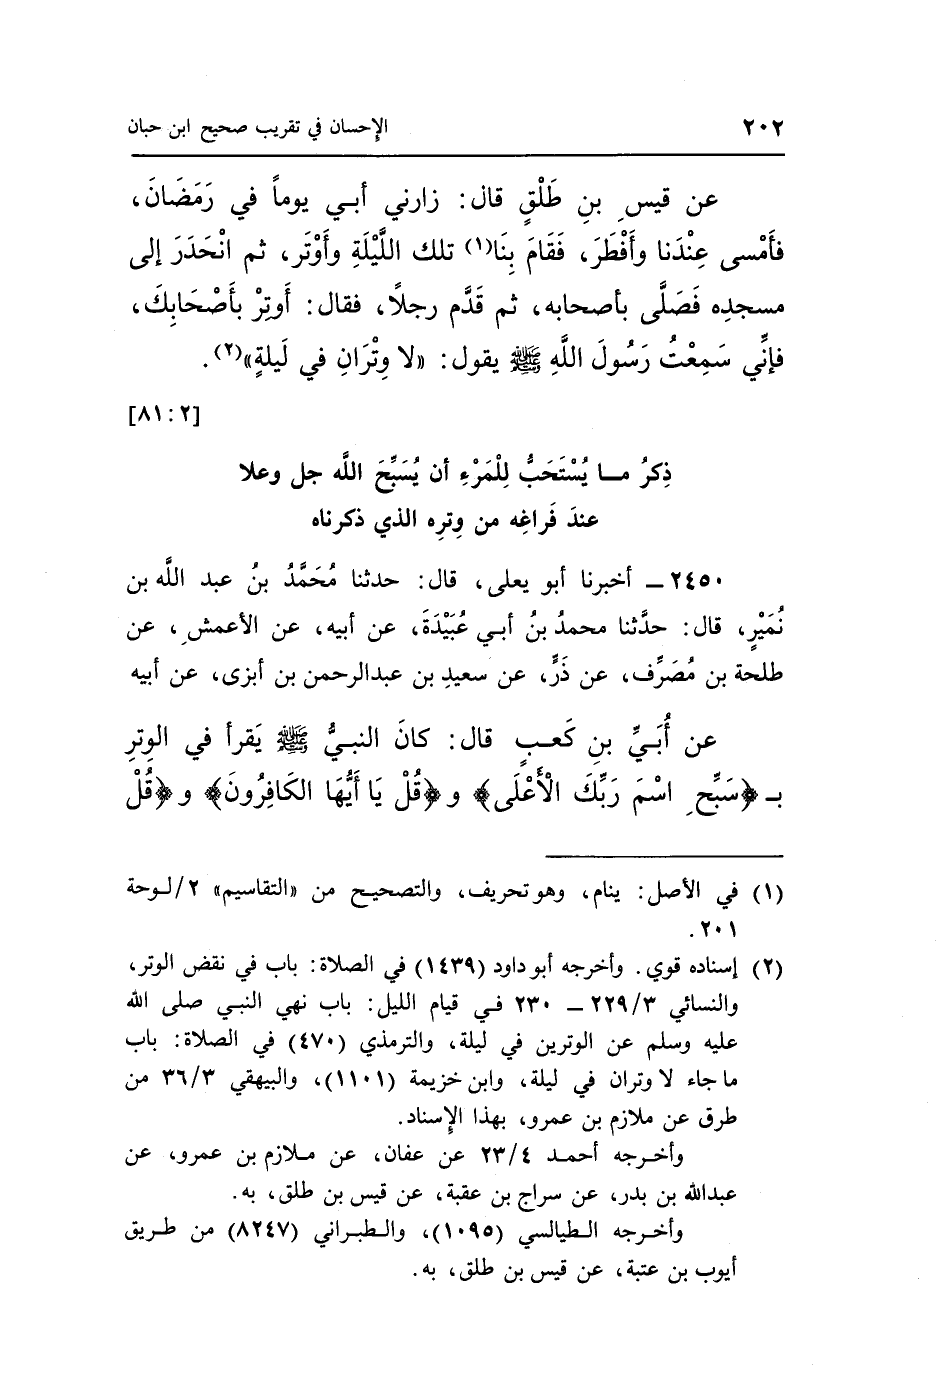 ٢٠٢ الإحسان في تقريب صحيح ابن حبان
عن قيسِ بنِ طَلْقٍ قال: زارني أبي يوماً في رَمَضَانَ،
فأَمْسى عِنْدَنا وأَفْطَرَ، فَقَامَ بِنَا(١) تلك اللَّيْلَةِ وأَوْتَر، ثم انْحَدَرَ إلى
مسجدِه فَصَلَّى بأصحابه، ثم قَدَّم رجلاً، فقال: أَوتِرْ بأَصْحَابِكَ،
فإنِّي سَمِعْتُ رَسُولَ اللَّهِ ﷺ يقول: «لا وِتْرَانِ في لَيلةٍ»(٢).
[٢: ٨١]
ذِكرُ ما يُسْتَحَبُّ لِلْمَرْءِ أن يُسَبِّحَ اللَّه جل وعلا
عندَ فَراغِه من وِترِه الذي ذكرناه
٢٤٥٠ ــ أخبرنا أبو يعلى، قال: حدثنا مُحَمَّدُ بنُ عبد اللَّه بن
نُمَيْرٍ، قال: حدَّثنا محمدُ بنُ أبي عُبَيْدَةَ، عن أبيه، عن الأعمشِ، عن
طلحة بن مُصَرِّف، عن ذَرٍّ، عن سعيدِ بن عبدالرحمن بن أبزى، عن أبيه
عن أُبَيِّ بنِ كَعبٍ قال: كانَ النبيُّ ﷺ يَقرأ في الوِترِ
بـ ﴿سَبِّحِ اسْمَ رَبِّكَ الْأَعْلَى﴾ و﴿قُلْ يَا أَيُّهَا الكَافِرُونَ﴾ و﴿قُلْ
(١) في الأصل: ينام، وهو تحريف، والتصحيح من «التقاسيم» ٢/لوحة
٢٠١.
(٢) إسناده قوي. وأخرجه أبو داود (١٤٣٩) في الصلاة: باب في نقض الوتر،
والنسائي ٢٢٩/٣ ــ ٢٣٠ في قيام الليل: باب نهي النبي صلى الله
عليه وسلم عن الوترين في ليلة، والترمذي (٤٧٠) في الصلاة: باب
ما جاء لا وتران في ليلة، وابن خزيمة (١١٠١)، والبيهقي ٣٦/٣ من
طرق عن ملازم بن عمرو، بهذا الإسناد.
وأخرجه أحمد ٢٣/٤ عن عفان، عن ملازم بن عمرو، عن
عبدالله بن بدر، عن سراج بن عقبة، عن قيس بن طلق، به.
وأخرجه الطيالسي (١٠٩٥)، والطبراني (٨٢٤٧) من طريق
أيوب بن عتبة، عن قيس بن طلق، به.